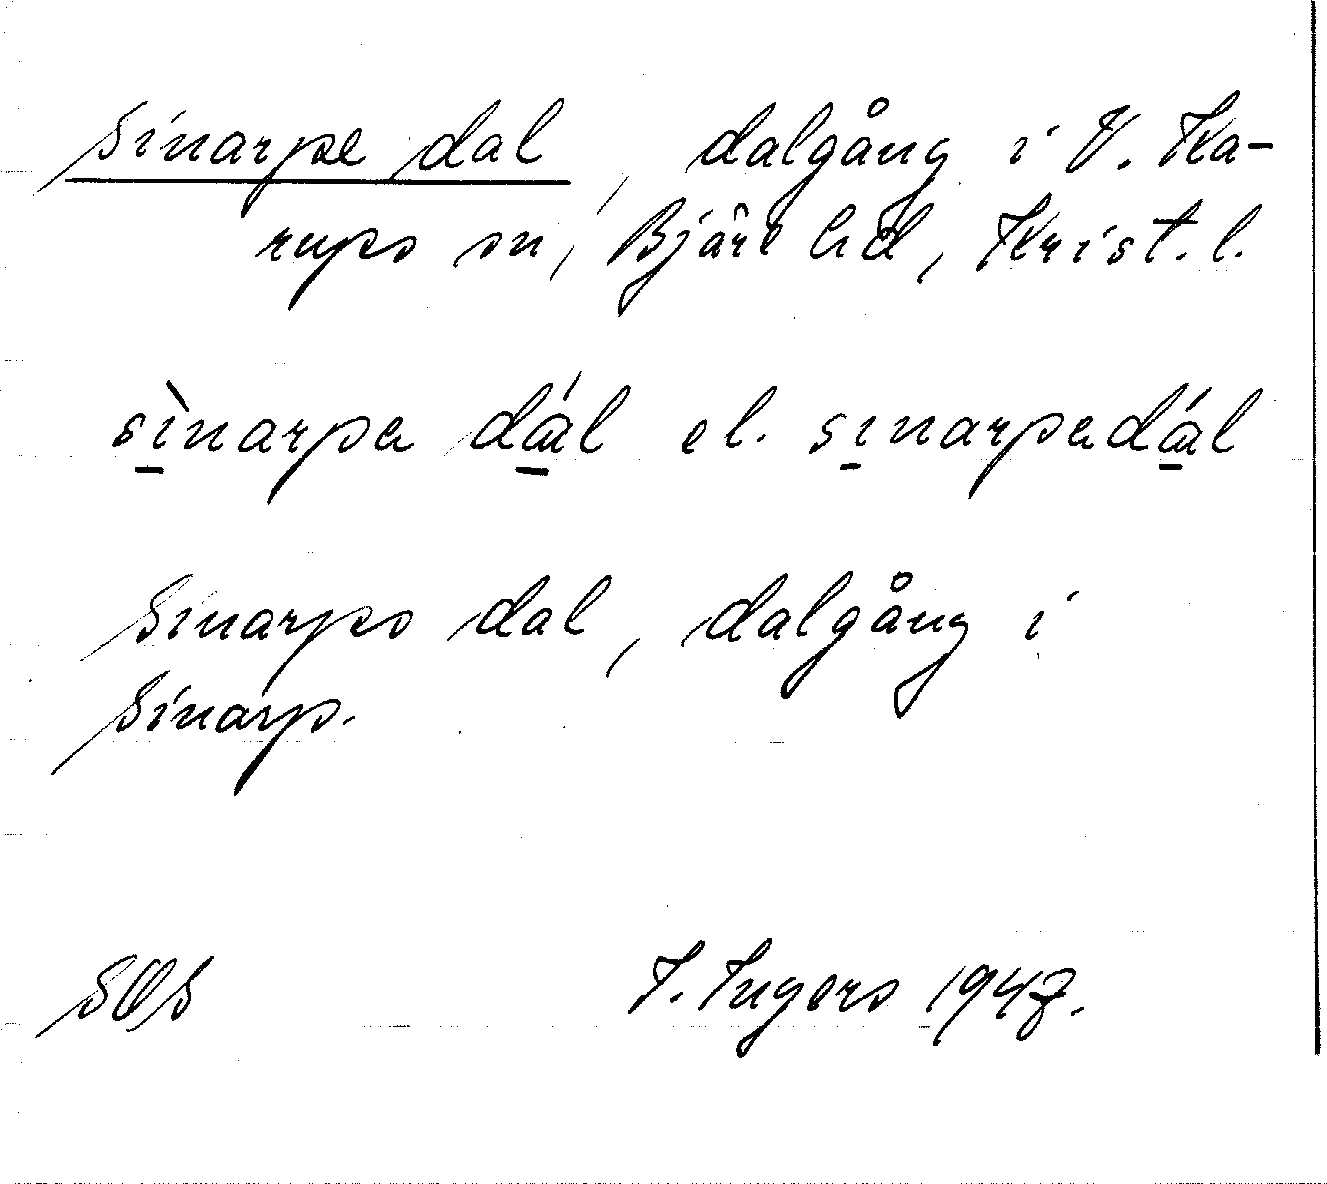 Sinarpe dal, dalgång i V. Ka-
rups sn, Bjäre hd, Krist. l.
sìnarpa dál el. sinarpadál
Sinarps dal, dalgång i
Sinarp.
SOS I. Ingers 1947.